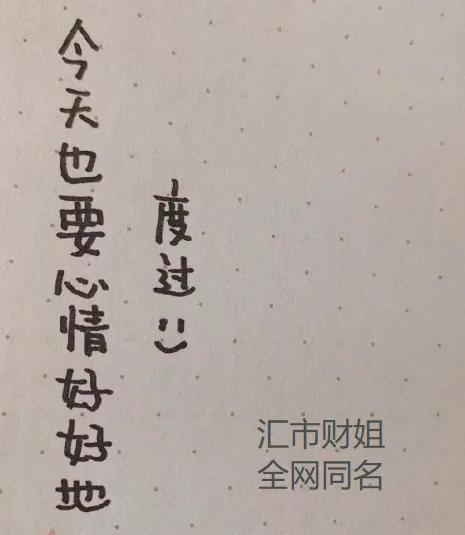 今天也要心情好好地
度过
汇市财姐
全网同名